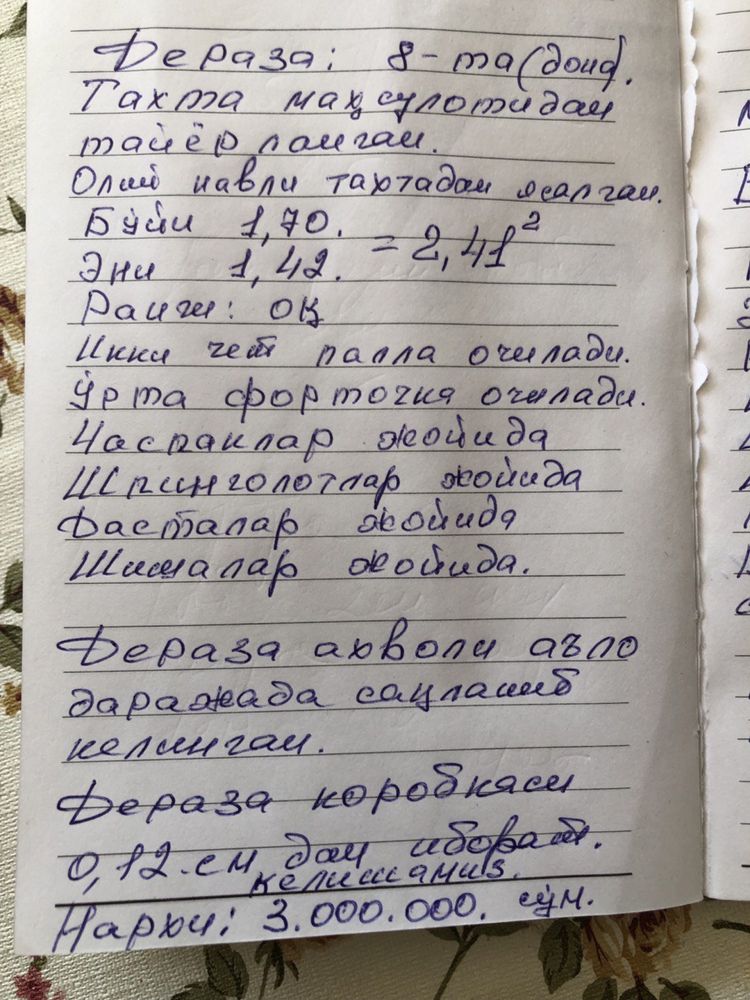 Дераза: 8-та(дона).
Тахта маҳсулотидан
тайёрланган.
Олий навли тахтадан ясалган.
Бўйи 1,70.
Эни 1,42. = 2,41²
Ранги: оқ
Икки чет палла очилади.
Ўрта форточка очилади.
Часпаклар жойида
Шпинголотлар жойида
Дасталар жойида
Шишалар жойида.
Дераза ахволи аъло
даражада сақланиб
келинган.
Дераза коробкаси
0,12.см дан иборат.
келишамиз.
Нархи: 3.000.000. сўм.